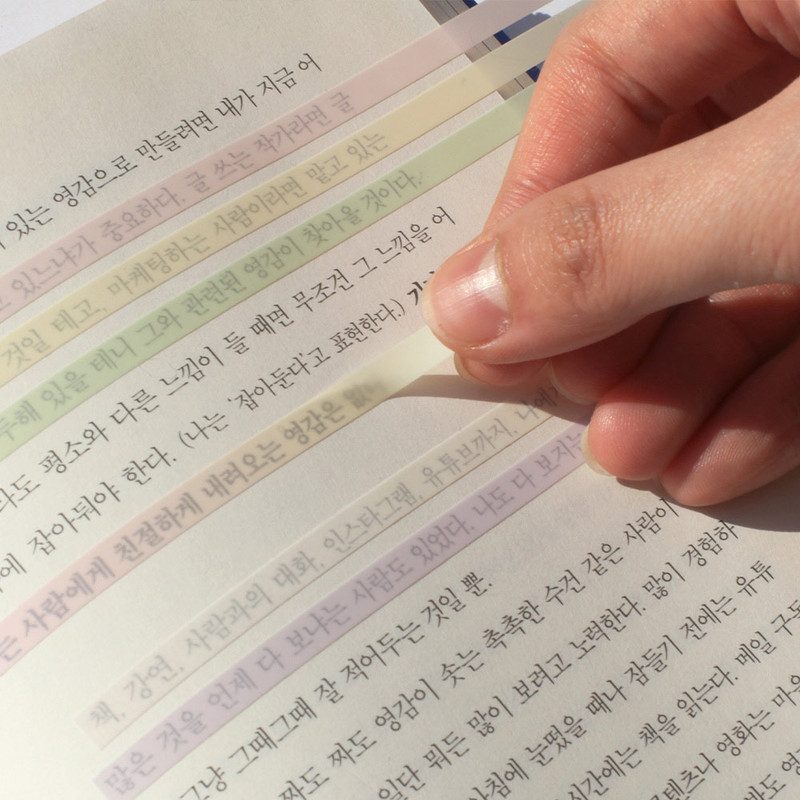 있는 영감으로 만들려면 내가 지금 어
있느냐가 중요하다. 글 쓰는 작가라면 글
것일 테고, 마케팅하는 사람이라면 맡고 있는
있을 테니 그와 관련된 영감이 찾아올 것이다.
평소와 다른 느낌이 들 때면 무조건 그 느낌을 어
잡아둬야 한다. (나는 '잡아둔다'고 표현한다.)
는 사람에게 친절하게 내려오는 영감은 없
책, 강연, 사람과의 대화, 인스타그램, 유튜브까지,
많은 것을 언제 다 보냐는 사람도 있었다. 나도 다 보지는
그냥 그때그때 잘 적어두는 것일 뿐.
짜도 짜도 영감이 솟는 촉촉한 수건 같은 사람이
일단 뭐든 많이 보려고 노력한다. 많이 경험하
눈떴을 때나 잠들기 전에는 유튜
시간에는 책을 읽는다. 메일 구독
영화는 마음